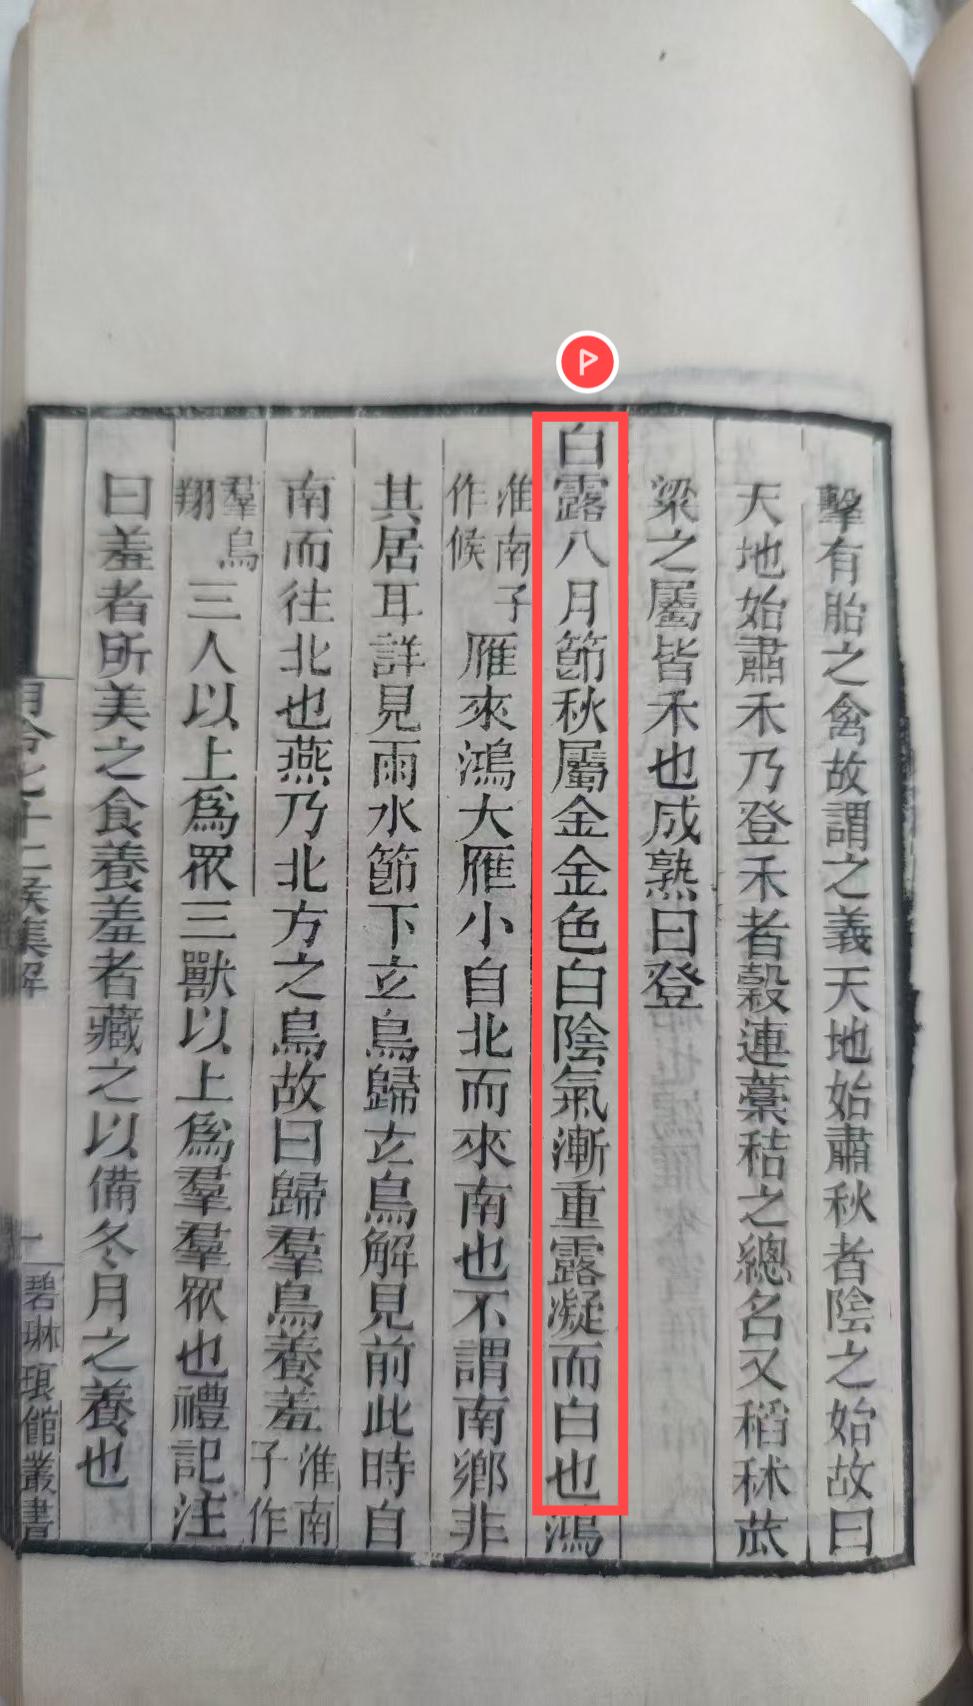 擊有胎之禽故謂之義天地始肅秋者陰之始故曰
天地始肅禾乃登禾者穀連藁秸之總名又稻秫苽
粱之屬皆禾也成熟曰登
白露八月節秋屬金金色白陰氣漸重露凝而白也鴻
淮南子作候雁來鴻大雁小自北而來南也不謂南鄉非
其居耳詳見雨水節下立鳥歸立鳥解見前此時自
南而往北也燕乃北方之鳥故曰歸羣鳥養羞淮南子作
羣鳥翔三人以上爲眾三獸以上爲羣羣眾也禮記注
曰羞者所美之食養羞者藏之以備冬月之養也
月令七十二候集解
碧琳琅館叢書